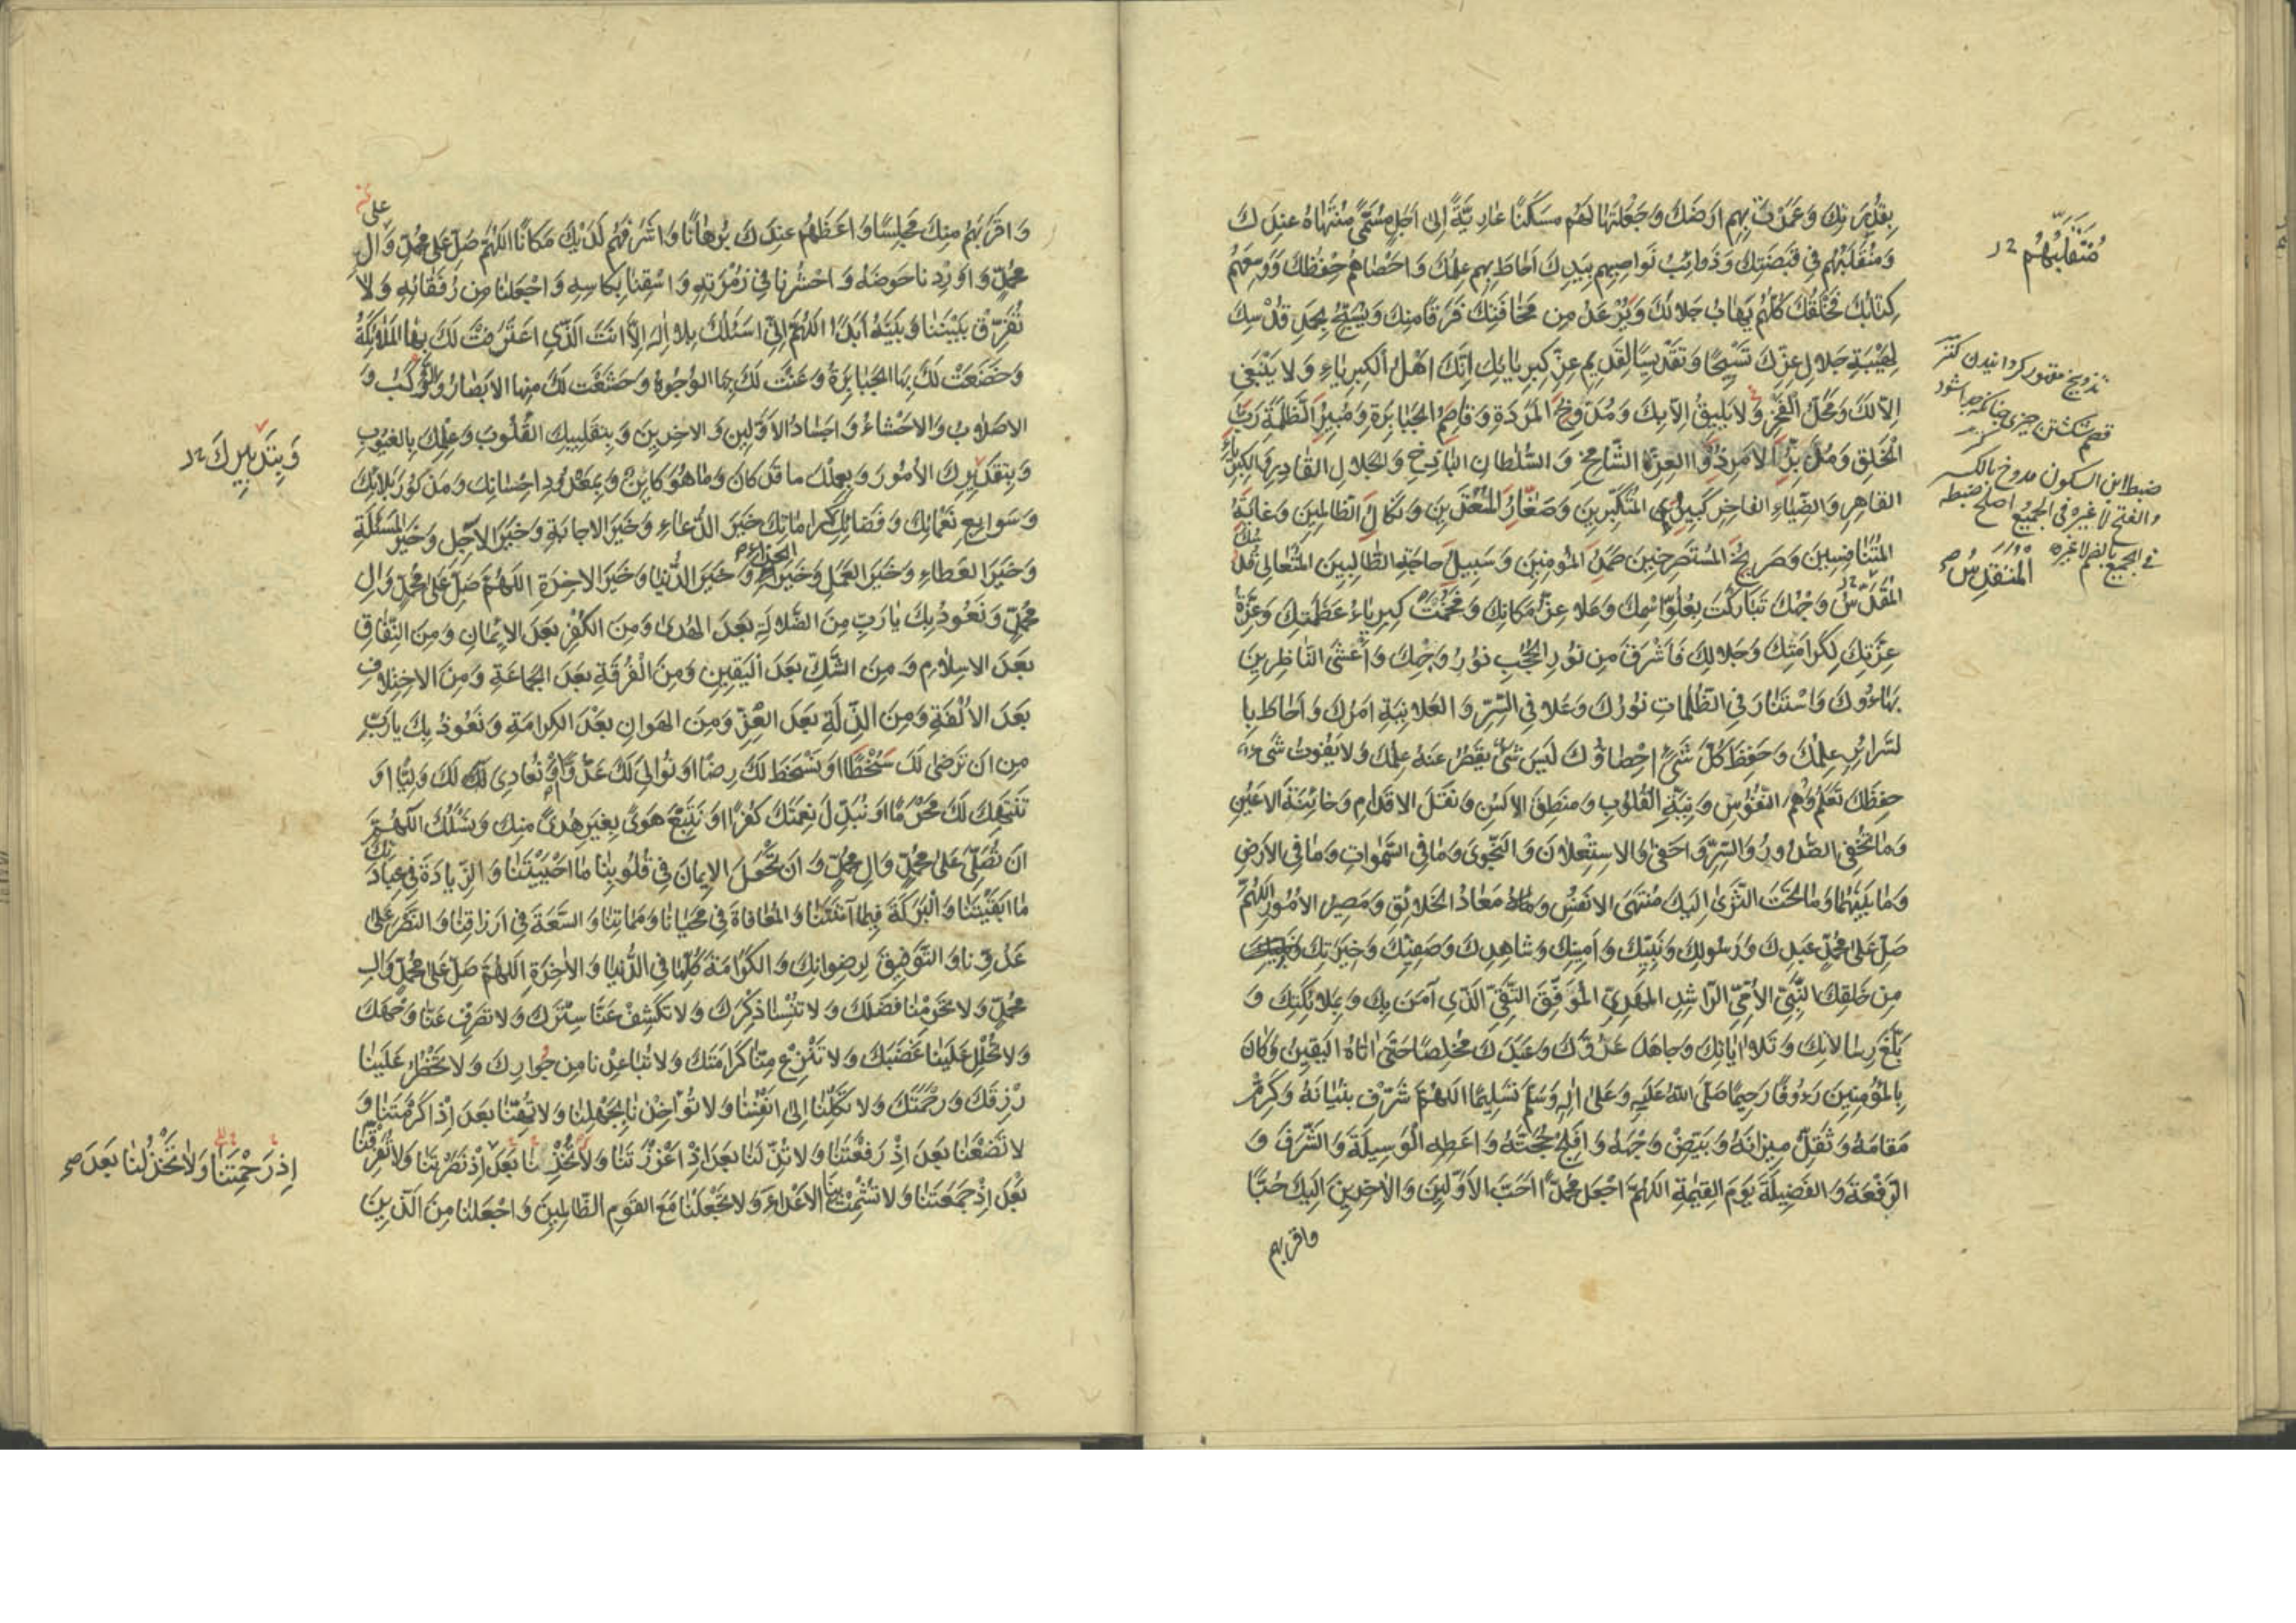 بِقُدْرَتِكَ وَعَمَرْتَ بِهِم اَرْضَكَ وَجَعَلْتَهٰا لَهُم مَسكَنًا عٰارِيَّةً اِلىٰ اَجَلٍ مُسَمًّى مُنْتَهٰاهُ عِندَكَ
وَمُنْقَلَبُهُم فِي قَبْضَتِكَ وَذَوائِبُ نَواصِيهِم بِيَدِكَ اَحٰاطَ بِهِم عِلمُكَ وَاَحْصٰاهُم حِفْظُكَ وَوَسِعَهُم
كِتٰابُكَ فَخَلْقُكَ كُلُّهُم يَهٰابُ جَلالَكَ وَيُرْعَدُ مِن مَخٰافَتِكَ فَرَقًا مِنكَ وَيُسَبِّحُ بِحَمدِ قُدْسِكَ
لِهَيْبَةِ جَلالِ عِزِّكَ تَسْبِيحًا وَتَقْدِيسًا لِقَدِيمِ عِزِّ كِبرِيٰائِكَ اِنَّكَ اَهْلُ الكِبرِيٰاءِ وَلا يَنْبَغِي
اِلّا لَكَ وَمَحَلُّ الفَخْرِ وَلا يَلِيقُ اِلّا بِكَ وَمُدَوِّخُ المَرَدَةِ وَقاصِمُ الجَبٰابِرَةِ وَمُبِيرُ الظَّلَمَةِ رَبُّ
الخَلقِ وَمُدَبِّرُ الاَمرِ ذُو العِزَّةِ الشّامِخِ وَالسُّلطانِ الباذِخِ وَالجَلالِ القٰادِرِ وَالكِبرِيٰاءِ
القاهِرِ وَالضِّيٰاءِ الفاخِرِ كَبِيرُ المُتَكَبِّرِينَ وَصَغٰارُ المُعْتَدِينَ وَنَكٰالُ الظّالِمِينَ وَغايَةُ
المُتَنٰافِسِينَ وَصَرِيخُ المُستَصرِخِينَ صَمَدُ المُؤمِنِينَ وَسَبِيلُ حاجَةِ الطّالِبِينَ المُتَعالِي قُدسُكَ
المُقَدَّسُ وَجْهُكَ تَبٰارَكْتَ بِعُلُوِّ اسْمِكَ وَعَلا عِزُّ مَكانِكَ وَفَخُمَتْ كِبرِيٰاءُ عَظَمَتِكَ وَعِزَّةُ
عِزَّتِكَ لِكَرامَتِكَ وَجَلالِكَ فَاَشْرَقَ مِن نُورِ الحُجُبِ نُورُ وَجْهِكَ وَاَغْشَى النّاظِرِينَ
بَهٰاءُوكَ وَاسْتَنٰارَ فِي الظُّلُمٰاتِ نُورُكَ وَعَلا فِي السِّرِّ وَالعَلانِيَةِ اَمرُكَ وَاَحٰاطَ بِا
لسَّرائِرِ عِلمُكَ وَحَفِظَ كُلَّ شَيءٍ اِحْصٰاؤُكَ لَيسَ شَيءٌ يَقصُرُ عَنهُ عِلمُكَ وَلا يَفُوتُ شَيءٌ
حِفظَكَ تَعلَمُ وَهْمَ النُّفُوسِ وَنِيَّةَ القُلُوبِ وَمَنطِقَ الاَلسُنِ وَنَقلَ الاَقدامِ وَخائِنَةَ الاَعيُنِ
وَمٰا تُخفِي الصُّدُورُ وَالسِّرَّ وَاَخفىٰ وَالاِستِعلانَ وَالنَّجوىٰ وَمٰا فِي السَّمٰواتِ وَمٰا فِي الاَرضِ
وَمٰا بَينَهُمٰا وَمٰا تَحتَ الثَّرىٰ اِلَيكَ مُنتَهَى الاَنفُسِ وَمَعٰادُ الخَلائِقِ وَمَصِيرُ الاُمُورِ اللّٰهُمَّ
صَلِّ عَلىٰ مُحَمَّدٍ عَبدِكَ وَرَسُولِكَ وَنَبِيِّكَ وَاَمِينِكَ وَشاهِدِكَ وَصَفِيِّكَ وَخِيَرَتِكَ
مِن خَلقِكَ النَّبِيِّ الاُمِّيِّ الرّاشِدِ المَهدِيِّ المُوَفَّقِ التَّقِيِّ الَّذِي آمَنَ بِكَ وَبِمَلائِكَتِكَ وَ
بَلَّغَ رِسٰالاتِكَ وَتَلا اٰيٰاتِكَ وَجاهَدَ عَدُوَّكَ وَعَبَدَكَ مُخلِصًا حَتّىٰ اَتٰاهُ اليَقِينُ وَكانَ
بِالمُؤمِنِينَ رَءُوفًا رَحِيمًا صَلَّى اللّٰهُ عَلَيهِ وَعَلىٰ اٰلِهِ وَسَلَّمَ تَسلِيمًا اللّٰهُمَّ شَرِّفْ بُنيٰانَهُ وَكَرِّمْ
مَقامَهُ وَثَقِّلْ مِيزانَهُ وَبَيِّضْ وَجهَهُ وَاَفلِجْ حُجَّتَهُ وَاَعطِهِ الوَسِيلَةَ وَالشَّرَفَ وَ
الرِّفعَةَ وَالفَضِيلَةَ يَومَ القِيٰمَةِ اللّٰهُمَّ اجعَل مُحَمَّدًا اَحَبَّ الاَوَّلِينَ وَالاٰخِرِينَ اِلَيكَ حُبًّا
واقربهم
مُتَقَلَّبُهُم
تدويخ مقهور كردانيدن
قصم شكستن چيزى چنانكه جدا شود
ضبط ابن السكون مدوخ بالكسر
والفتح لا غير فى الجميع اصلح ضبطه
فى الجميع بالضم لا غير
المُتَقَدِّسُ
وَاَقرَبَهُم مِنكَ مَجلِسًا وَاَعظَمَهُم عِندَكَ بُرهٰانًا وَاَشرَفَهُم لَدَيكَ مَكانًا اللّٰهُمَّ صَلِّ عَلىٰ مُحَمَّدٍ وَعَلى اٰلِ
مُحَمَّدٍ وَاَورِدنا حَوضَهُ وَاحشُرنا فِي زُمرَتِهِ وَاسقِنا بِكاسِهِ وَاجعَلنا مِن رُفَقٰائِهِ وَلا
تُفَرِّقْ بَينَنا وَبَينَهُ اَبَدًا اللّٰهُمَّ اِنِّي اَسئَلُكَ بِلا اِلٰهَ اِلّا اَنتَ الَّذِي اعتَرَفَتْ لَكَ بِهَا المَلٰائِكَةُ
وَخَضَعَتْ لَكَ بِهَا الجَبٰابِرَةُ وَعَنَتْ لَكَ بِهَا الوُجُوهُ وَخَشَعَت لَكَ مِنهَا الاَبصٰارُ وَالرُّكَبُ وَ
الاَصلٰابُ وَالاَحشٰاءُ وَاَجسٰادُ الاَوَّلِينَ وَالاٰخِرِينَ وَبِتَقلِيبِكَ القُلُوبَ وَعِلمِكَ بِالغُيُوبِ
وَبِتَقدِيرِكَ الاُمُورَ وَبِعِلمِكَ ما قَد كانَ وَمٰا هُوَ كائِنٌ وَبِمَعدُودِ اِحسٰانِكَ وَمَذكُورِ بَلائِكَ
وَسَوابِغِ نَعمٰائِكَ وَفَضائِلِ كَراماتِكَ خَيرَ الدُّعٰاءِ وَخَيرَ الاِجابَةِ وَخَيرَ الاَجَلِ وَخَيرَ المَسئَلَةِ
وَخَيرَ العَطاءِ وَخَيرَ العَمَلِ وَخَيرَ الجَزاءِ وَخَيرَ الدُّنيٰا وَخَيرَ الاٰخِرَةِ اللّٰهُمَّ صَلِّ عَلىٰ مُحَمَّدٍ وَاٰلِ
مُحَمَّدٍ وَنَعُوذُ بِكَ يا رَبِّ مِنَ الضَّلالَةِ بَعدَ الهُدىٰ وَمِنَ الكُفرِ بَعدَ الاِيمٰانِ وَمِنَ النِّفاقِ
بَعدَ الاِسلامِ وَمِنَ الشَّكِّ بَعدَ اليَقِينِ وَمِنَ الفُرقَةِ بَعدَ الجَماعَةِ وَمِنَ الاِختِلافِ
بَعدَ الاُلفَةِ وَمِنَ الذِّلَّةِ بَعدَ العِزِّ وَمِنَ الهَوانِ بَعدَ الكَرامَةِ وَنَعُوذُ بِكَ يا رَبِّ
مِن اَن نَرضىٰ لَكَ سُخطًا اَو نَسخَطَ لَكَ رِضًا اَو نُوالِيَ لَكَ عَدُوًّا اَو نُعادِيَ لَكَ وَلِيًّا اَو
نَنتَهِكَ لَكَ مَحرَمًا اَو نُبَدِّلَ نِعمَتَكَ كُفرًا اَو نَتَّبِعَ هَوىً بِغَيرِ هُدىً مِنكَ وَنَسئَلُكَ اللّٰهُمَّ
اَن تُصَلِّيَ عَلىٰ مُحَمَّدٍ وَاٰلِ مُحَمَّدٍ وَاَن تَجعَلَ الاِيمانَ فِي قُلُوبِنا مٰا اَحيَيتَنا وَالزِّيادَةَ فِي عِبادَتِكَ
مٰا اَبقَيتَنا وَالبَرَكَةَ فِيمٰا آتَيتَنا وَالمُعافاةَ فِي مَحيٰانا وَمَماتِنا وَالسَّعَةَ فِي اَرزاقِنا وَالنَّصرَ عَلىٰ
عَدُوِّنا وَالتَّوفِيقَ لِرِضوانِكَ وَالكَرامَةَ كُلَّها فِي الدُّنيا وَالاٰخِرَةِ اللّٰهُمَّ صَلِّ عَلىٰ مُحَمَّدٍ وَاٰلِ
مُحَمَّدٍ وَلا تَحرِمنا فَضلَكَ وَلا تُنسِنا ذِكرَكَ وَلا تَكشِف عَنّا سِترَكَ وَلا تَصرِف عَنّا وَجهَكَ
وَلا تُحلِل عَلَينا غَضَبَكَ وَلا تَنزِع مِنّا كَرامَتَكَ وَلا تُباعِدنا مِن جِوارِكَ وَلا تَحظُر عَلَينا
رِزقَكَ وَرَحمَتَكَ وَلا تَكِلنا اِلىٰ اَنفُسِنا وَلا تُؤاخِذنا بِجَهلِنا وَلا تُهِنّا بَعدَ اِذ اَكرَمتَنا وَ
لا تَضَعنا بَعدَ اِذ رَفَعتَنا وَلا تُذِلَّنا بَعدَ اِذ اَعزَزتَنا وَلا تَخذُلنا بَعدَ اِذ نَصَرتَنا وَلا تُفَرِّقنا
بَعدَ اِذ جَمَعتَنا وَلا تُشمِت بِنَا الاَعداءَ وَلا تَجعَلنا مَعَ القَومِ الظّالِمِينَ وَاجعَلنا مِنَ الَّذِينَ
وَبِتَدبِيرِكَ
اِذ رَحِمتَنا وَلا تَخذُلنا بَعدَ